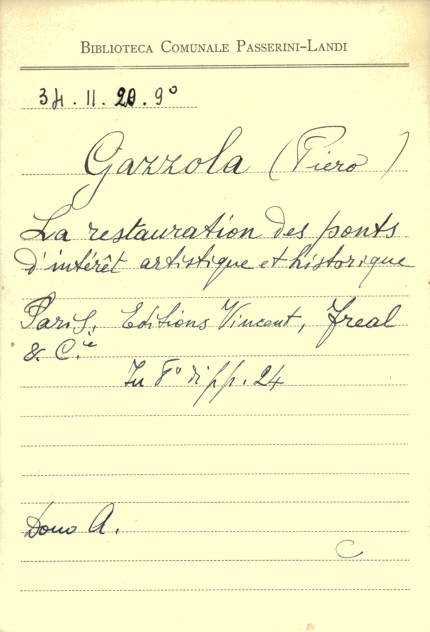 BIBLIOTECA COMUNALE PASSERINI-LANDI
34.11.20.9°
Gazzola (Piero)
La restauration des ponts
d'intérêt artistique et historique
Paris, Editions Vincent, Freal
& C.ie
In 8° di pp. 24
Dono A.
C